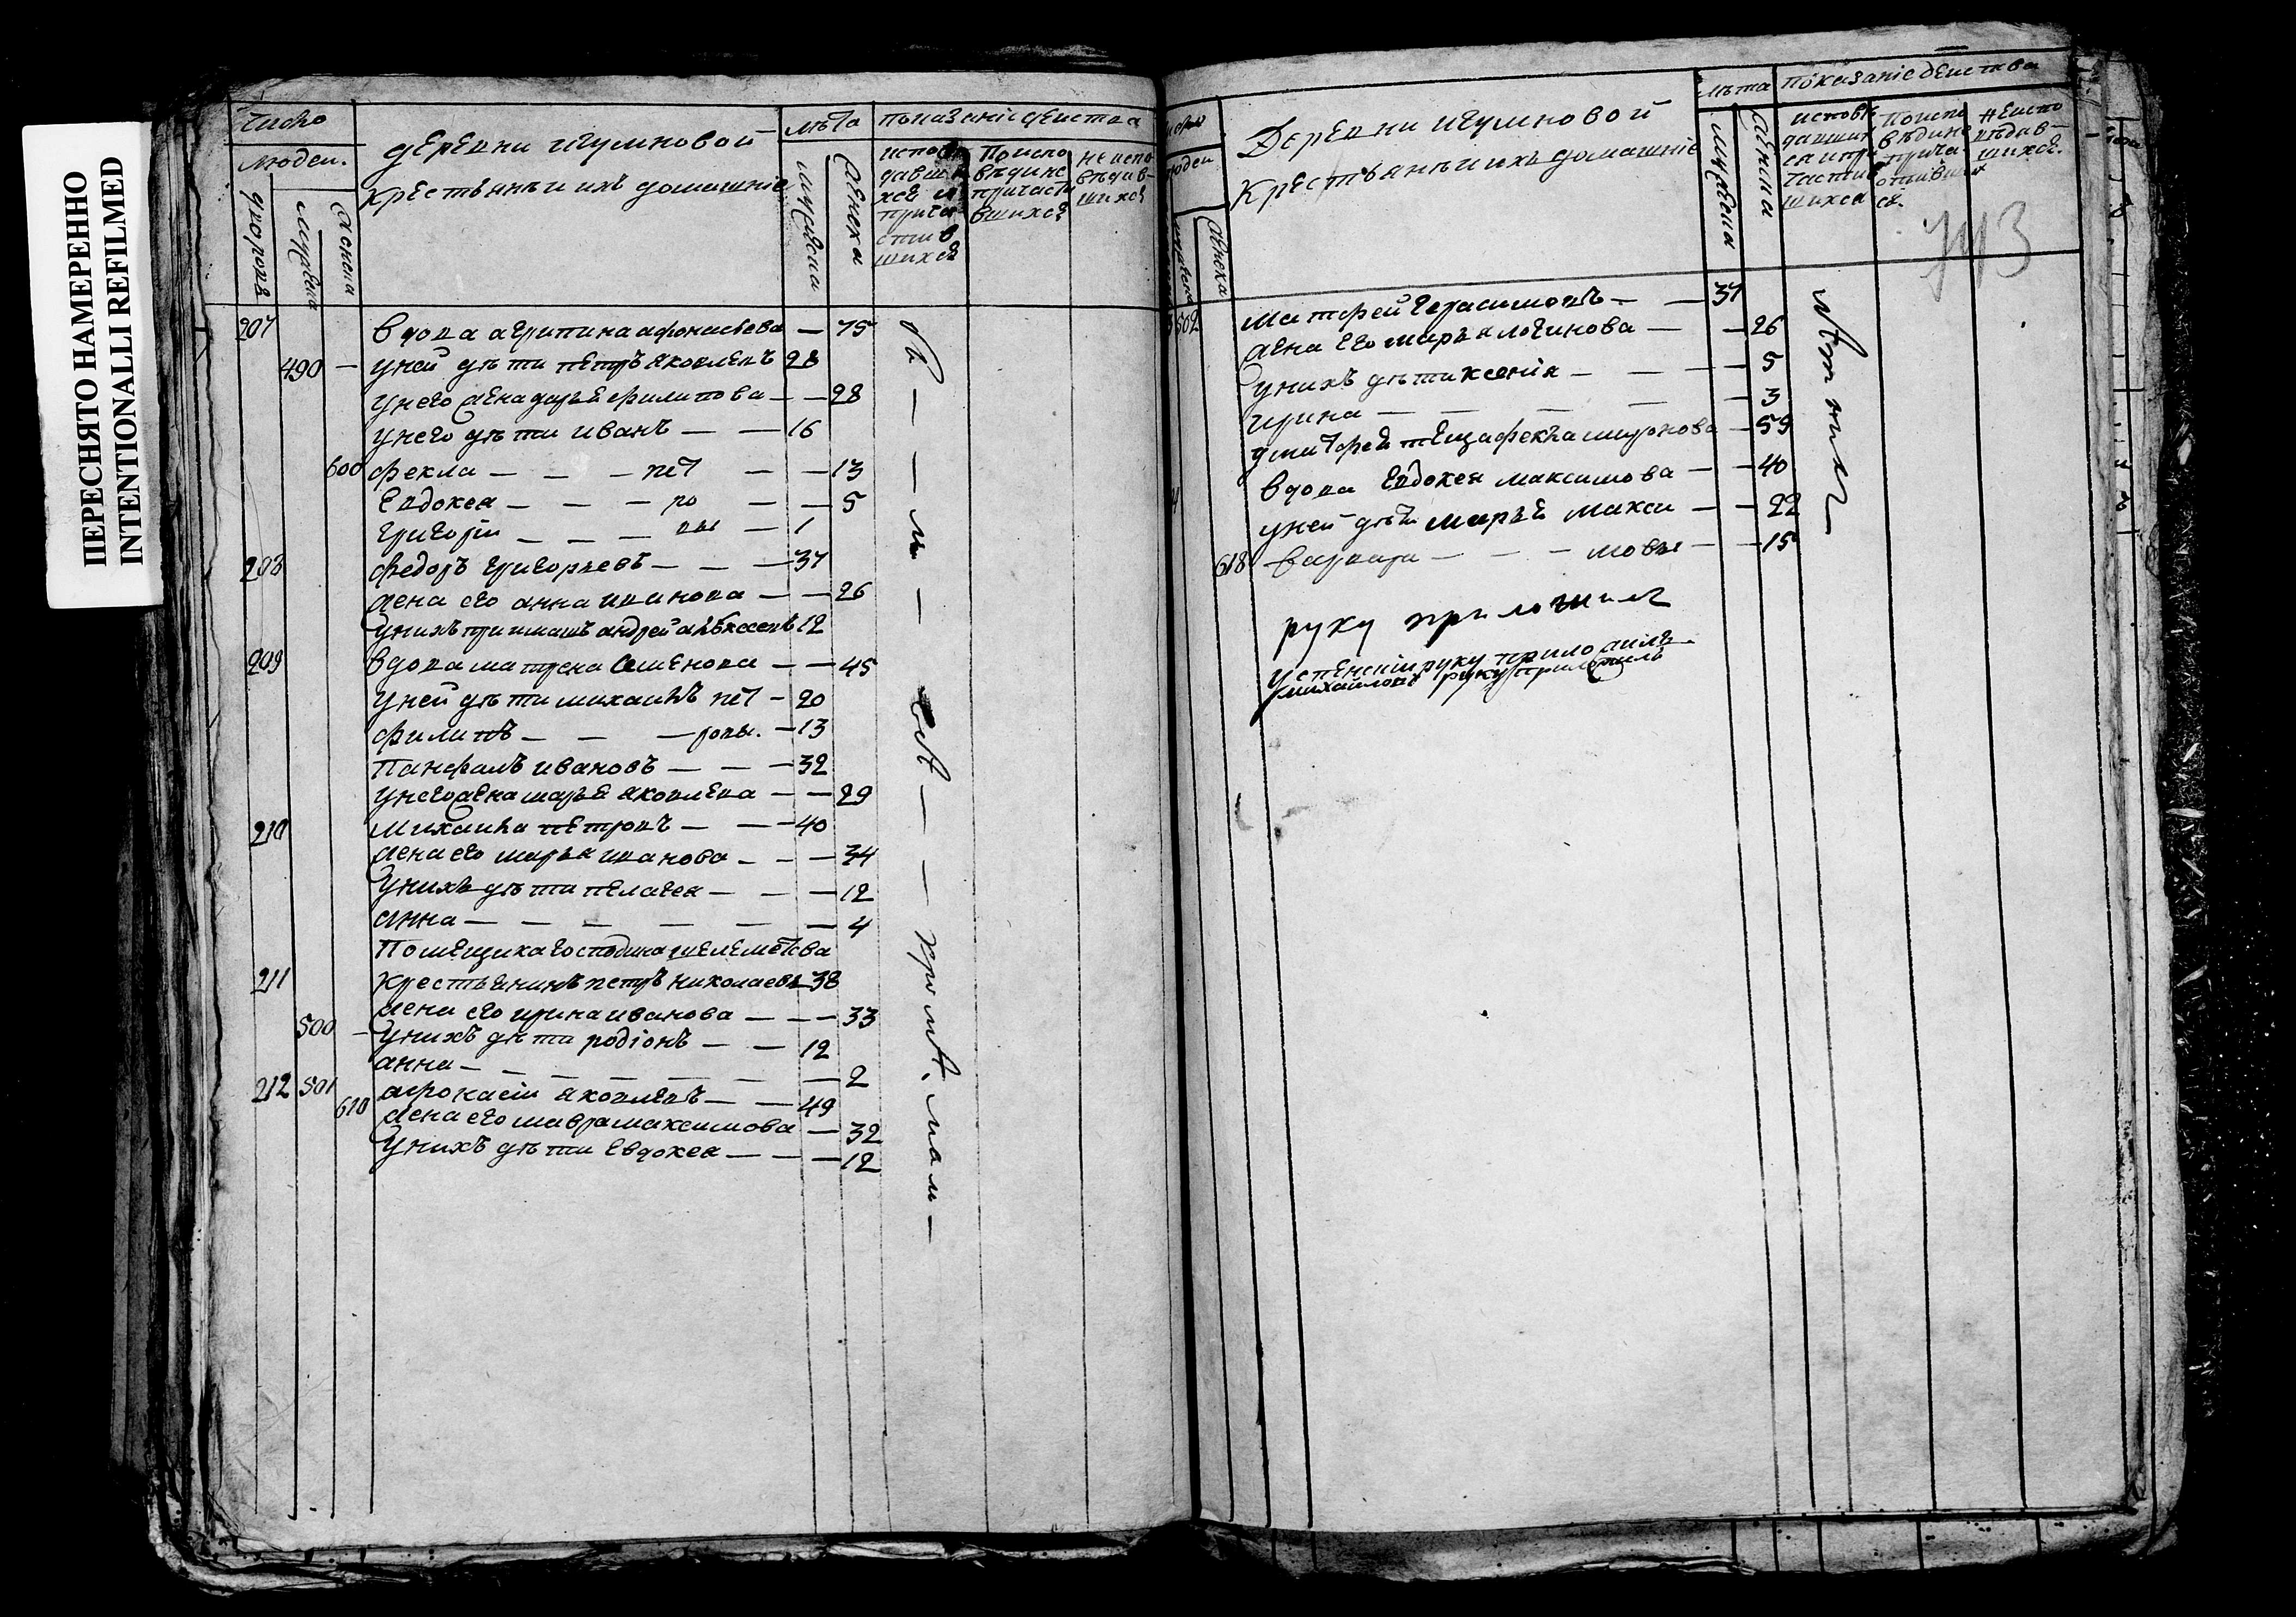 ПЕРЕСНЯТО НАМЕРЕННО
INTENTIONALLI REFILMED
Число
людеи.
дворовъ
мужеска
женска
деревни игумновой
крестьяне и ихъ домашние
лѣта
мужеска
женска
показание действа
испове
давши
хся и
прича
стив
шихся
По испо
вѣди не
причасти
вшихся
не испо
вѣдав-
шихся
207 вдова агрипина афонасьева — 75
490 — у ней дѣти петръ яковлевъ 28
у него жена дарья филипова — — 28
у него дѣти иванъ — — 16
600 фекла — — — пет — — 13
Евдокея — — — ро — — 5
григорiй — — — вы — 1
208 федоръ григорьевъ — — — 37
жена его анна иванова — — 26
у нихъ приимашъ андрей алѣксеевъ 12
209 вдова матрена семенова — — 45
у ней дѣти михаилъ пет — 20
филипъ — — — ровы. — 13
Панфилъ ивановъ — — — 32
у него жена марья яковлева — — 29
210 михаила петровъ — — — 40
жена его марья иванова — — — 34
у нихъ дѣти пелагея — — — 12
анна — — — — — — — 4
Помещика господина шелеметева
211 крестьянинъ петръ николаевъ — 38
жена его ирина иванова — — — 33
500 — у нихъ дѣти родiонъ — — 12
анна — — — — — — — 2
212 501 афонасiи яковлевъ — — 49
610 жена его мавра максимова — 32
у нихъ дѣти Евдокея — — — 12
число
людеи
мужеска
женска
Деревни игумновой
крестьяне и ихъ домашние
лѣта
мужеска
женска
показанiе действа
исповѣ
давших
ся и при
частив
шихся
По испо
вѣди не
прича
стивших
ся.
Не испо
вѣдав-
шихся.
743
502 матфей герасимовъ — — 37
жена его марья логинова — — 26
у нихъ дѣти ксенiя — — — — 5
ирина — — — — — 3
у матфея теща фекла миронова — 59
вдова Евдокея максимова — — 40
у ней дѣти марья макси — — 22
618 варвара — — — мовы — — 15
руку приложил
успенскiи руку приложилъ
михайловъ руку приложилъ